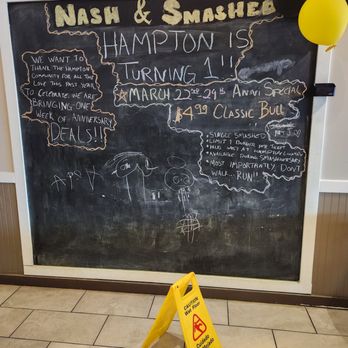 NASH & SMASHED
HAMPTON IS
TURNING 1!!
WE WANT TO
THANK THE HAMPTON
COMMUNITY FOR ALL THE
LOVE THIS PAST YEAR
TO CELEBRATE WE ARE
BRINGING ONE
WEEK OF ANNIVERSARY
DEALS!!
MARCH 22ND-29TH ANNI SPECIAL
$4.99 CLASSIC BULL
• SINGLE SMASHED
• LIMIT 1 BURGER PER TICKET
• ONLY VALID AT HAMPTON LOCATION
• AVAILABLE DURING
• MOST IMPORTANTLY, DON'T
WALK... RUN!!
CAUTION
Wet Floor
Cuidado
Mojado